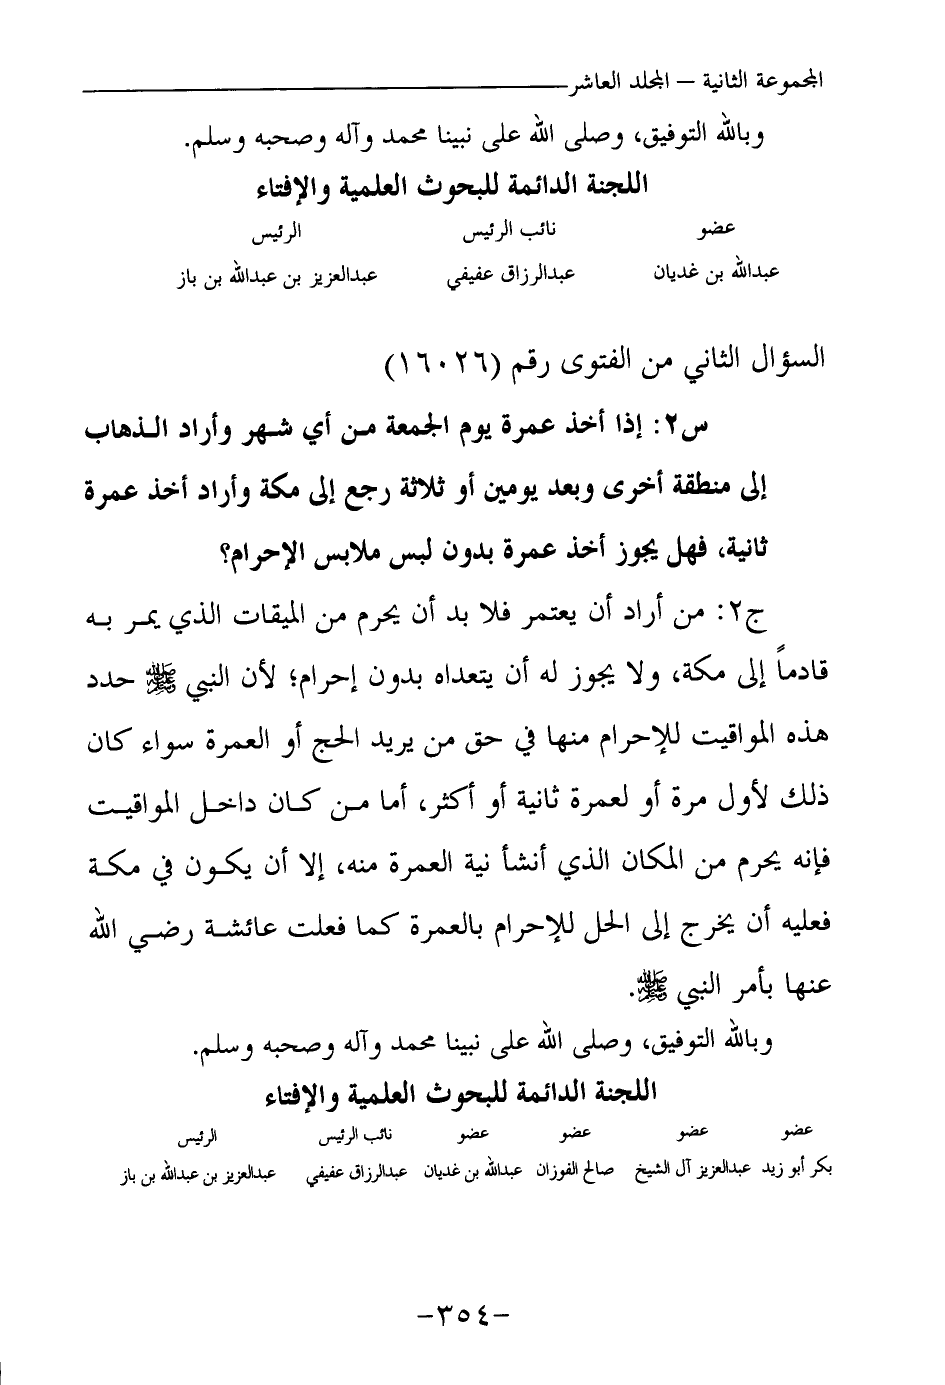 المجموعة الثانية – المجلد العاشر
وبالله التوفيق، وصلى الله على نبينا محمد وآله وصحبه وسلم.
اللجنة الدائمة للبحوث العلمية والإفتاء
عضو نائب الرئيس الرئيس
عبدالله بن غديان عبدالرزاق عفيفي عبدالعزيز بن عبدالله بن باز
السؤال الثاني من الفتوى رقم (١٦٠٢٦)
س٢: إذا أخذ عمرة يوم الجمعة من أي شهر وأراد الذهاب
إلى منطقة أخرى وبعد يومين أو ثلاثة رجع إلى مكة وأراد أخذ عمرة
ثانية، فهل يجوز أخذ عمرة بدون لبس ملابس الإحرام؟
ج٢: من أراد أن يعتمر فلا بد أن يحرم من الميقات الذي يمر به
قادماً إلى مكة، ولا يجوز له أن يتعداه بدون إحرام؛ لأن النبي ﷺ حدد
هذه المواقيت للإحرام منها في حق من يريد الحج أو العمرة سواء كان
ذلك لأول مرة أو لعمرة ثانية أو أكثر، أما من كان داخل المواقيت
فإنه يحرم من المكان الذي أنشأ نية العمرة منه، إلا أن يكون في مكة
فعليه أن يخرج إلى الحل للإحرام بالعمرة كما فعلت عائشة رضي الله
عنها بأمر النبي ﷺ.
وبالله التوفيق، وصلى الله على نبينا محمد وآله وصحبه وسلم.
اللجنة الدائمة للبحوث العلمية والإفتاء
عضو عضو عضو عضو نائب الرئيس الرئيس
بكر أبو زيد عبدالعزيز آل الشيخ صالح الفوزان عبدالله بن غديان عبدالرزاق عفيفي عبدالعزيز بن عبدالله بن باز
-٣٥٤-